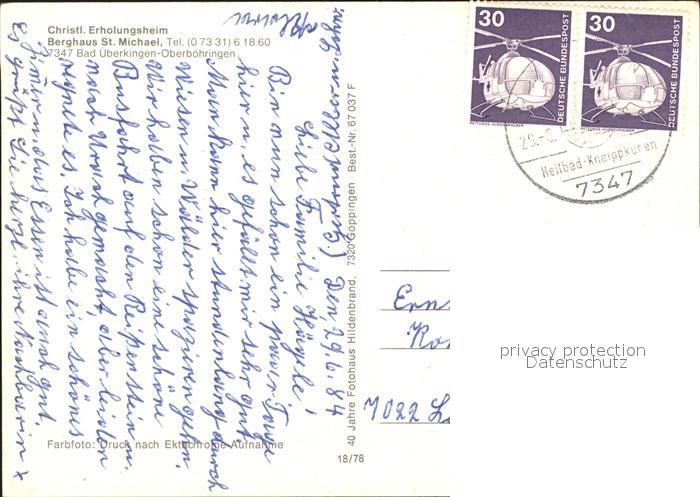 Christl. Erholungsheim
Berghaus St. Michael, Tel. (0 73 31) 6 18 60
7347 Bad Überkingen-Oberböhringen
Den 29.6.84
Liebe Familie Hägele!
Bin nun schon ein paar Tage
hier u. es gefällt mir sehr gut.
Man kann hier stundenlang durch
Wiesen u. Wälder spazieren gehen.
Wir haben schon eine schöne
Busfahrt auf den Reißenstein u.
nach Urach gemacht, aber leider
regnete es. Ich habe ein schönes
Zimmer u. das Essen ist auch gut.
Es grüßt Sie herzl. ihre Nachbarin
Farbfoto: Druck nach Ektachrome-Aufnahme
18/78
40 Jahre Fotohaus Hildenbrand, 7320 Göppingen Best.-Nr. 67 037 F
30
DEUTSCHE BUNDESPOST
RETTUNGS-HUBSCHRAUBER
30
DEUTSCHE BUNDESPOST
RETTUNGS-HUBSCHRAUBER
Heilbad-Kneippkuren
7347
Ern
7022 L
privacy protection
Datenschutz